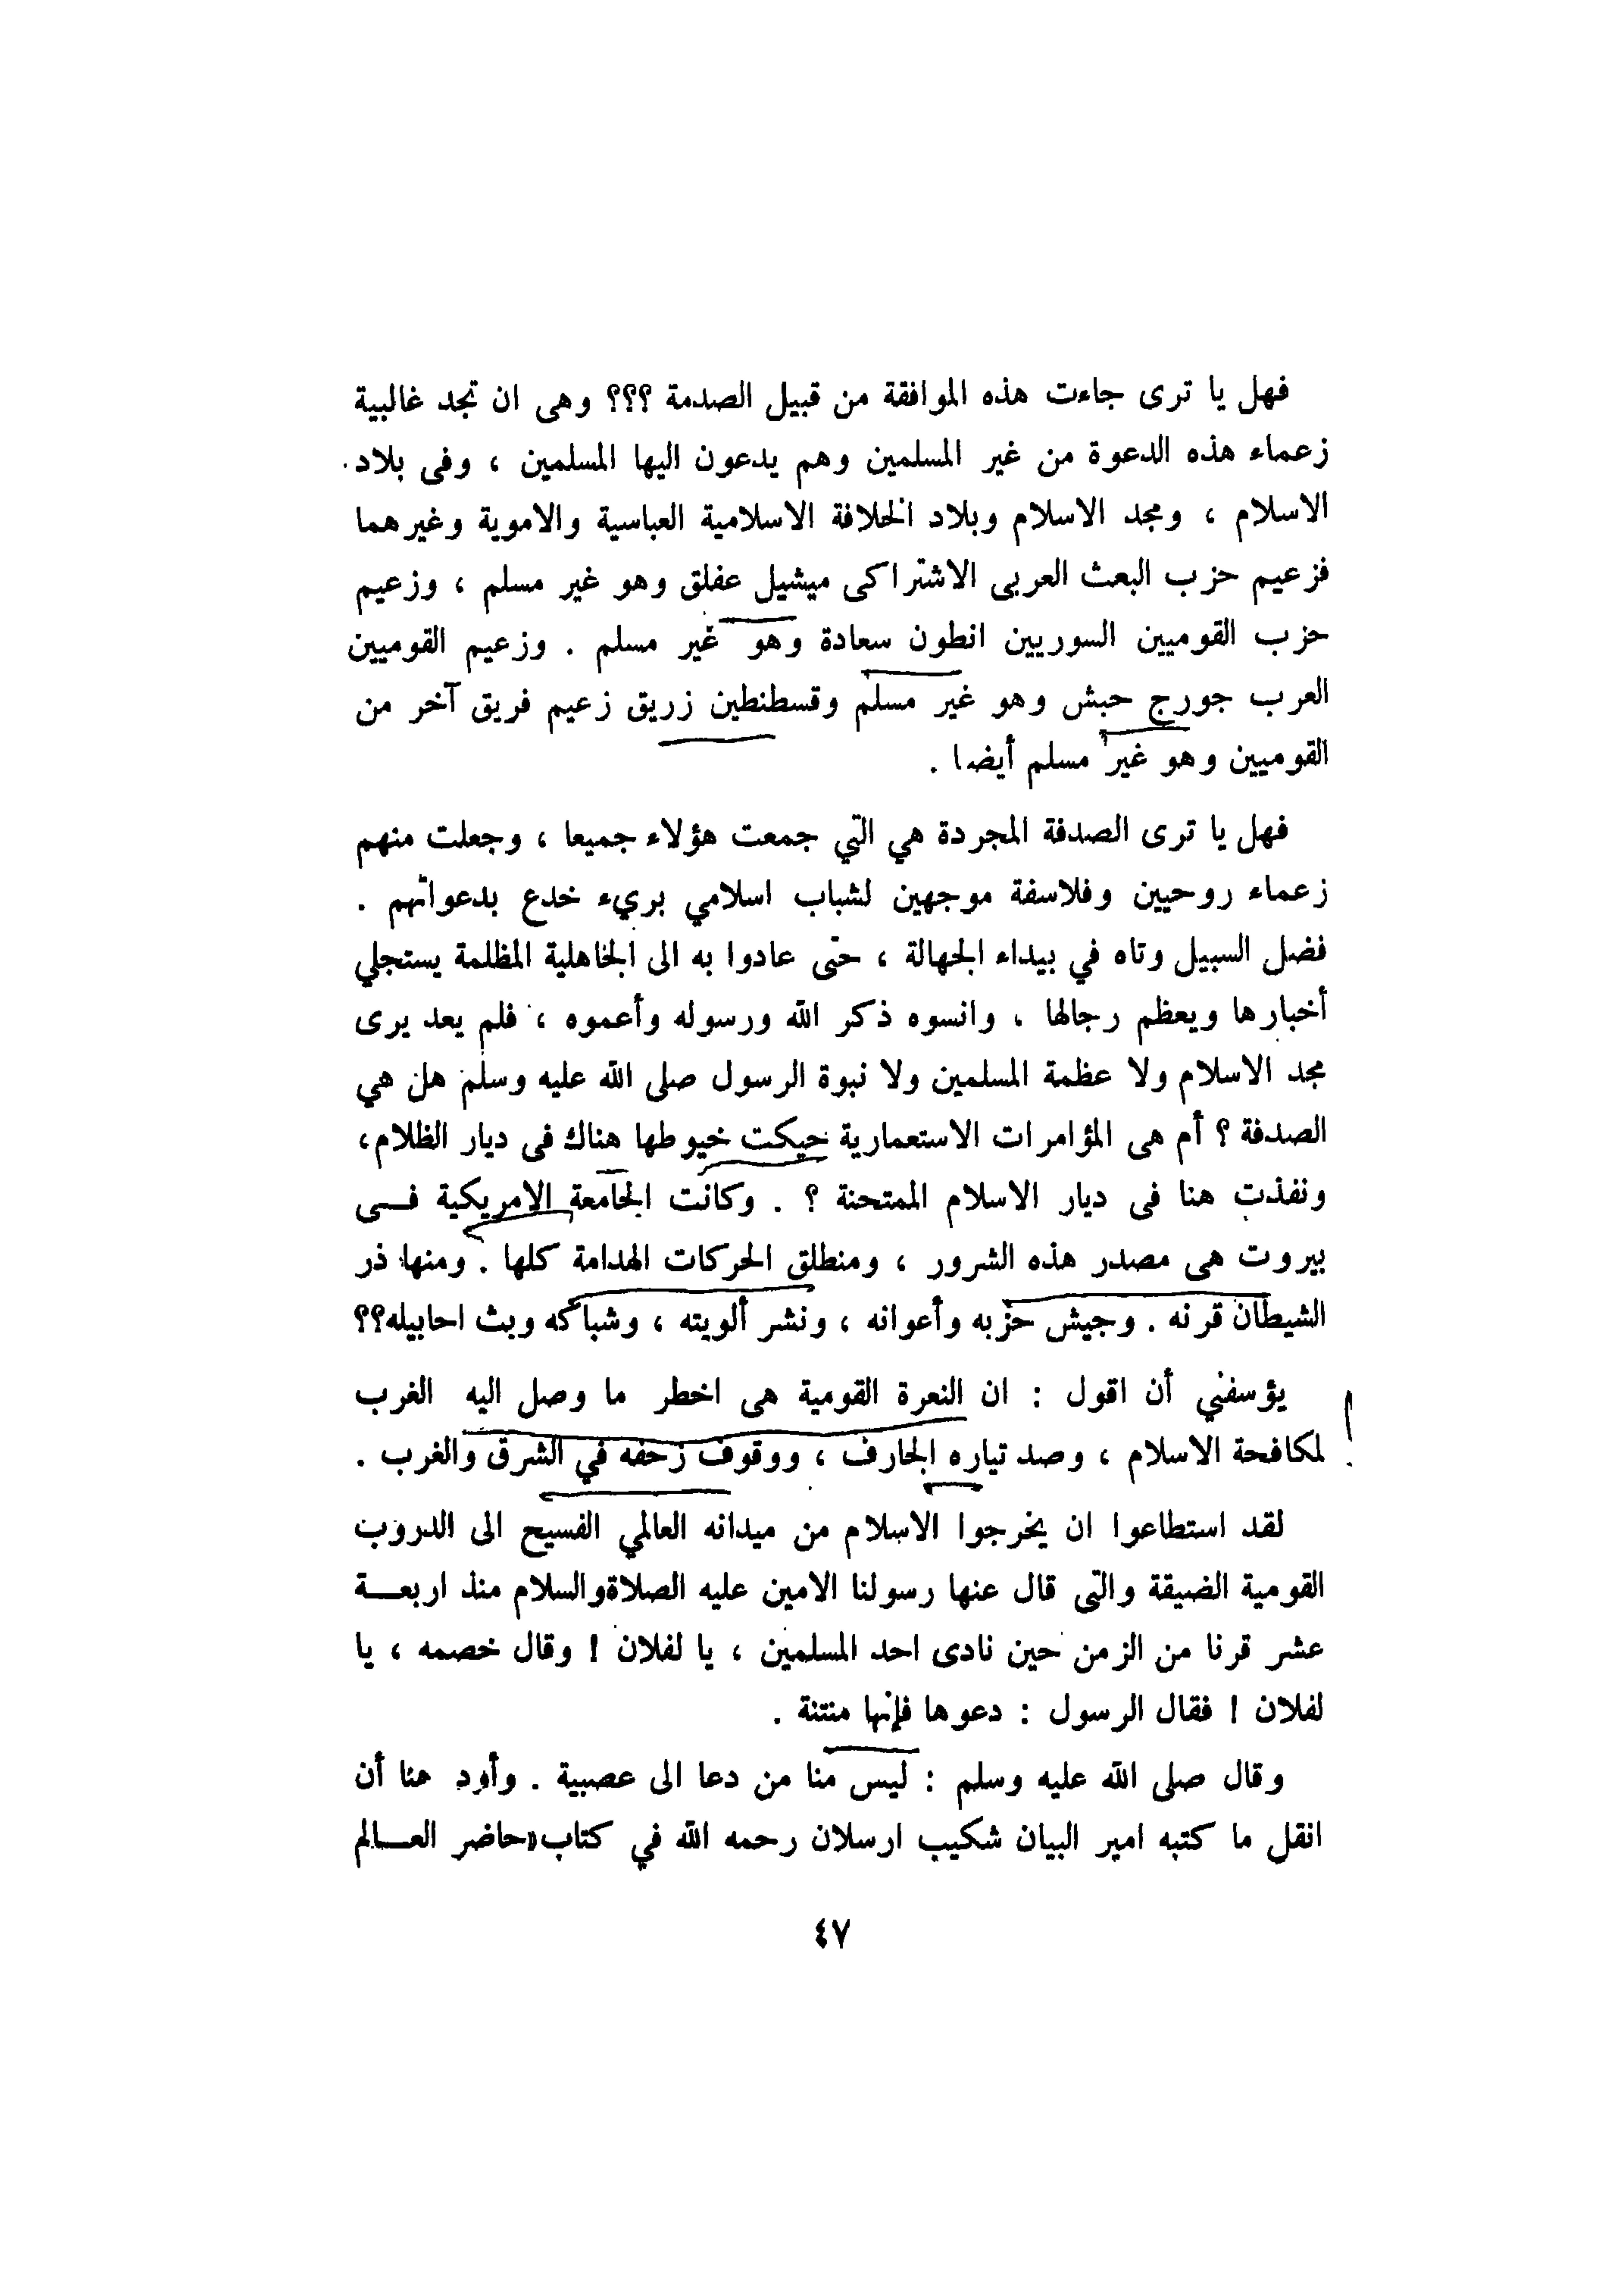 فهل يا ترى جاءت هذه الموافقة من قبيل الصدمة ؟؟؟ وهى ان تجد غالبية
زعماء هذه الدعوة من غير المسلمين وهم يدعون اليها المسلمين ، وفى بلاد
الاسلام ، ومجد الاسلام وبلاد الخلافة الاسلامية العباسية والاموية وغيرهما
فزعيم حزب البعث العربى الاشتراكى ميشيل عفلق وهو غير مسلم ، وزعيم
حزب القوميين السوريين انطون سعادة وهو غير مسلم . وزعيم القوميين
العرب جورج حبش وهو غير مسلم وقسطنطين زريق زعيم فريق آخر من
القوميين وهو غير مسلم أيضا .
فهل يا ترى الصدفة المجردة هي التي جمعت هؤلاء جميعا ، وجعلت منهم
زعماء روحيين وفلاسفة موجهين لشباب اسلامي بريء خدع بدعواتهم .
فضل السبيل وتاه في بيداء الجهالة ، حتى عادوا به الى الجاهلية المظلمة يستجلي
أخبارها ويعظم رجالها ، وانسوه ذكر الله ورسوله وأعموه ، فلم يعد يرى
مجد الاسلام ولا عظمة المسلمين ولا نبوة الرسول صلى الله عليه وسلم هل هي
الصدفة ؟ أم هى المؤامرات الاستعمارية حيكت خيوطها هناك فى ديار الظلام،
ونفذت هنا فى ديار الاسلام الممتحنة ؟ . وكانت الجامعة الامريكية فــى
بيروت هى مصدر هذه الشرور ، ومنطلق الحركات الهدامة كلها . ومنها ذر
الشيطان قرنه . وجيش حزبه وأعوانه ، ونشر ألويته ، وشباكه وبث احابيله؟؟
يؤسفني أن اقول : ان النعرة القومية هى اخطر ما وصل اليه الغرب
لمكافحة الاسلام ، وصد تياره الجارف ، ووقوف زحفه في الشرق والغرب .
لقد استطاعوا ان يخرجوا الاسلام من ميدانه العالمي الفسيح الى الدروب
القومية الضيقة والتى قال عنها رسولنا الامين عليه الصلاةوالسلام منذ اربعــة
عشر قرنا من الزمن حين نادى احد المسلمين ، يا لفلان ! وقال خصمه ، يا
لفلان ! فقال الرسول : دعوها فإنها منتنة .
وقال صلى الله عليه وسلم : ليس منا من دعا الى عصبية . وأود هنا أن
انقل ما كتبه امير البيان شكيب ارسلان رحمه الله في كتاب«حاضر العــالم
٤٧